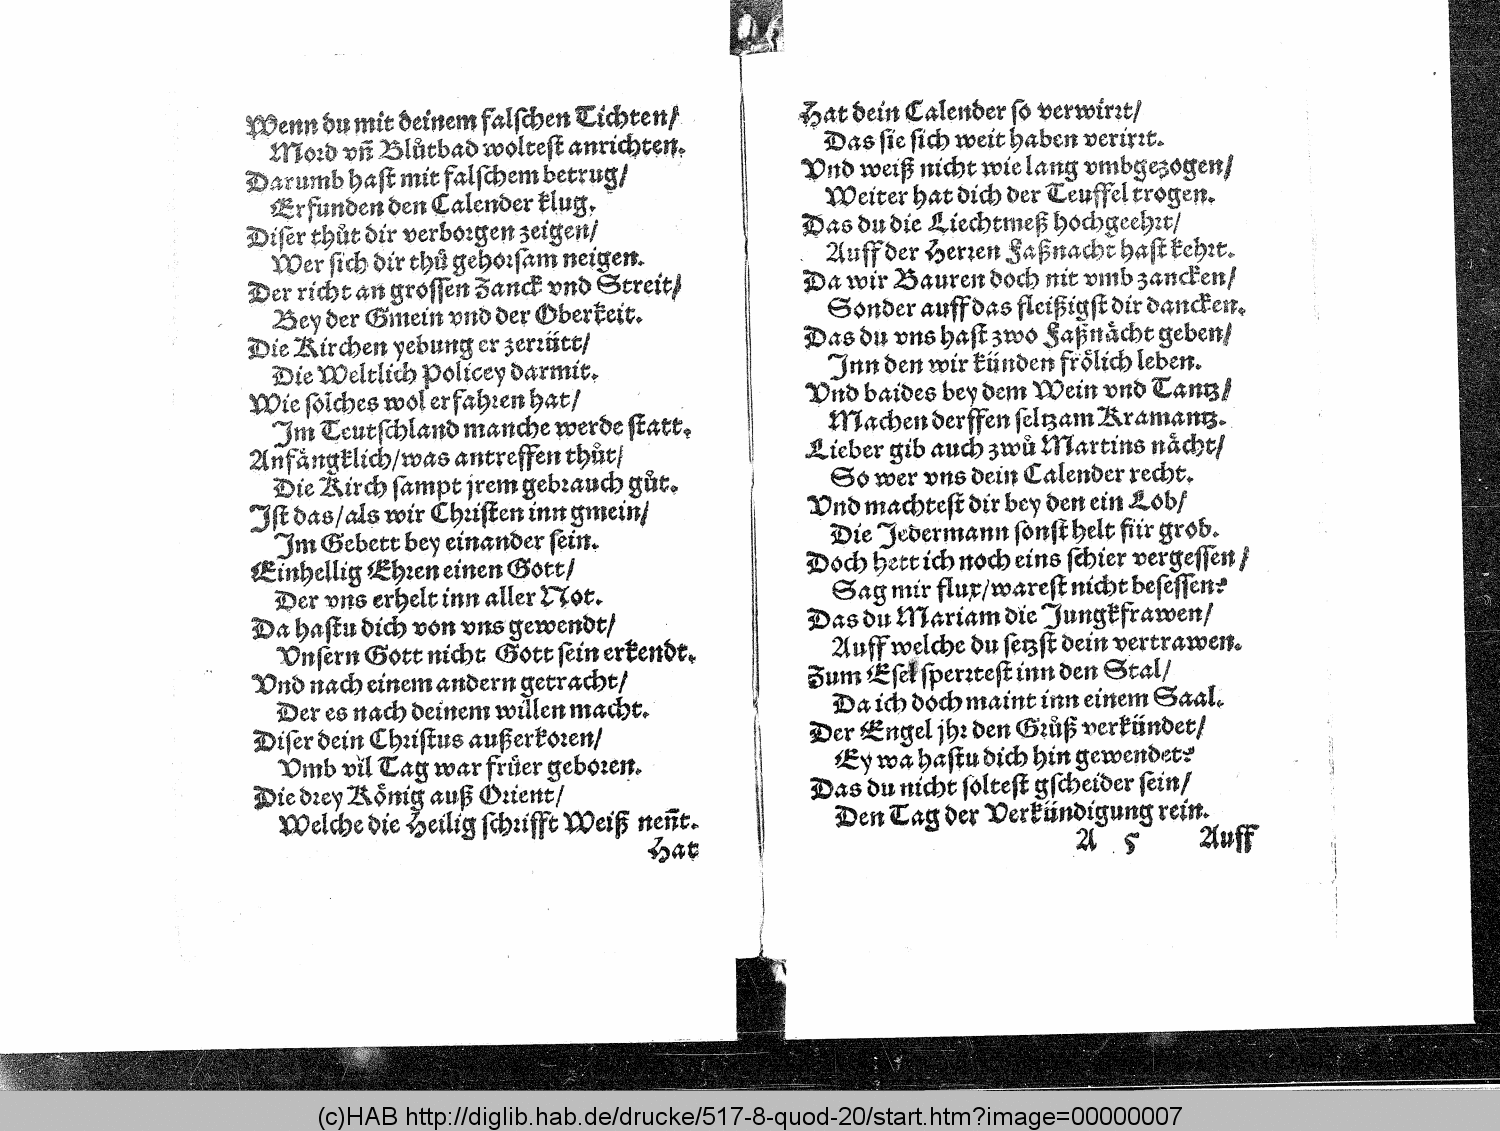 Wenn du mit deinem falschen Tichten/
Mord vñ Blůtbad woltest anrichten.
Darumb hast mit falschem betrug/
Erfunden den Calender klug.
Diser thůt dir verborgen zeigen/
Wer sich dir thů gehorsam neigen.
Der richt an grossen Zanck vnd Streit/
Bey der Gmein vnd der Oberkeit.
Die Kirchen yebung er zerrütt/
Die Weltlich Policey darmit.
Wie solches wol erfahren hat/
Im Teutschland manche werde statt.
Anfängklich/was antreffen thůt/
Die Kirch sampt jrem gebrauch gůt.
Ist das/als wir Christen inn gmein/
Im Gebett bey einander sein.
Einhellig Ehren einen Gott/
Der vns erhelt inn aller Not.
Da hastu dich von vns gewendt/
Vnsern Gott nicht Gott sein erkendt.
Vnd nach einem andern getracht/
Der es nach deinem willen macht.
Diser dein Christus außerkoren/
Vmb vil Tag war früer geboren.
Die drey König auß Orient/
Welche die Heilig schrifft Weiß neñt.
Hat
Hat dein Calender so verwirrt/
Das sie sich weit haben verirrt.
Vnd weiß nicht wie lang vmbgezogen/
Weiter hat dich der Teuffel trogen.
Das du die Liechtmeß hochgeehrt/
Auff der Herren Faßnacht hast kehrt.
Da wir Bauren doch nit vmb zancken/
Sonder auff das fleißigst dir dancken.
Das du vns hast zwo Faßnächt geben/
Inn den wir künden frölich leben.
Vnd baides bey dem Wein vnd Tantz/
Machen derffen seltzam Kramantz.
Lieber gib auch zwů Martins nächt/
So wer vns dein Calender recht.
Vnd machtest dir bey den ein Lob/
Die Jedermann sonst helt für grob.
Doch hett ich noch eins schier vergessen/
Sag mir flux/warest nicht besessen?
Das du Mariam die Jungkfrawen/
Auff welche du setzst dein vertrawen.
Zum Esel sperrtest inn den Stal/
Da ich doch maint inn einem Saal.
Der Engel jhr den Grůß verkündet/
Ey wa hastu dich hin gewendet?
Das du nicht soltest gscheider sein/
Den Tag der Verkündigung rein.
A 5 Auff
(c)HAB http://diglib.hab.de/drucke/517-8-quod-20/start.htm?image=00000007